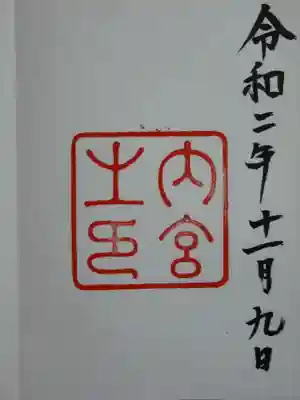 令和二年十一月九日
内宮
之印